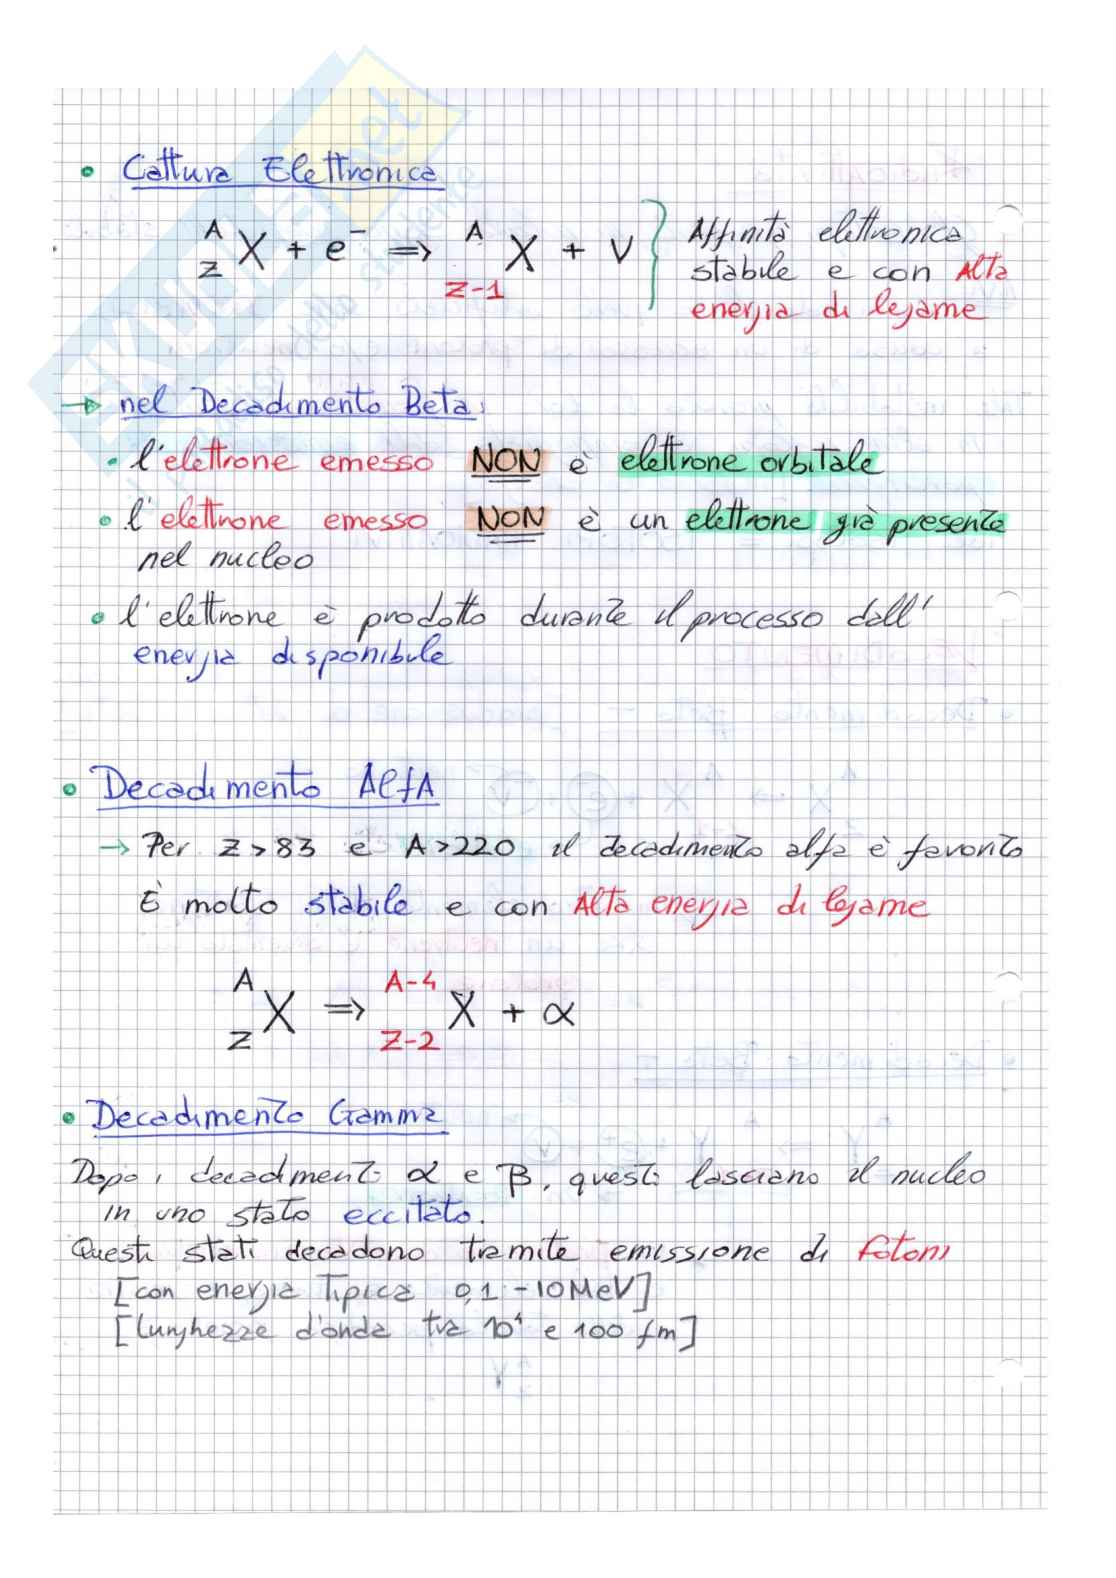 • Cattura Elettronica
A Z X + e⁻ ⇒ A Z-1 X + ν } Affinità elettronica
stabile e con Alta
energia di legame
→ nel Decadimento Beta:
• l'elettrone emesso NON è elettrone orbitale
• l'elettrone emesso NON è un elettrone già presente
nel nucleo
• l'elettrone è prodotto durante il processo dall'
energia disponibile
• Decadimento AlfA
→ Per Z > 83 e A > 220 il decadimento alfa è favorito
È molto stabile e con Alta energia di legame
A Z X ⇒ A-4 Z-2 X + α
• Decadimento Gamma
Dopo i decadimenti α e β, questi lasciano il nucleo
in uno stato eccitato.
Questi stati decadono tramite emissione di fotoni
[con energia Tipica 0,1 - 10 MeV]
[lunghezze d'onda tra 10⁴ e 100 fm]